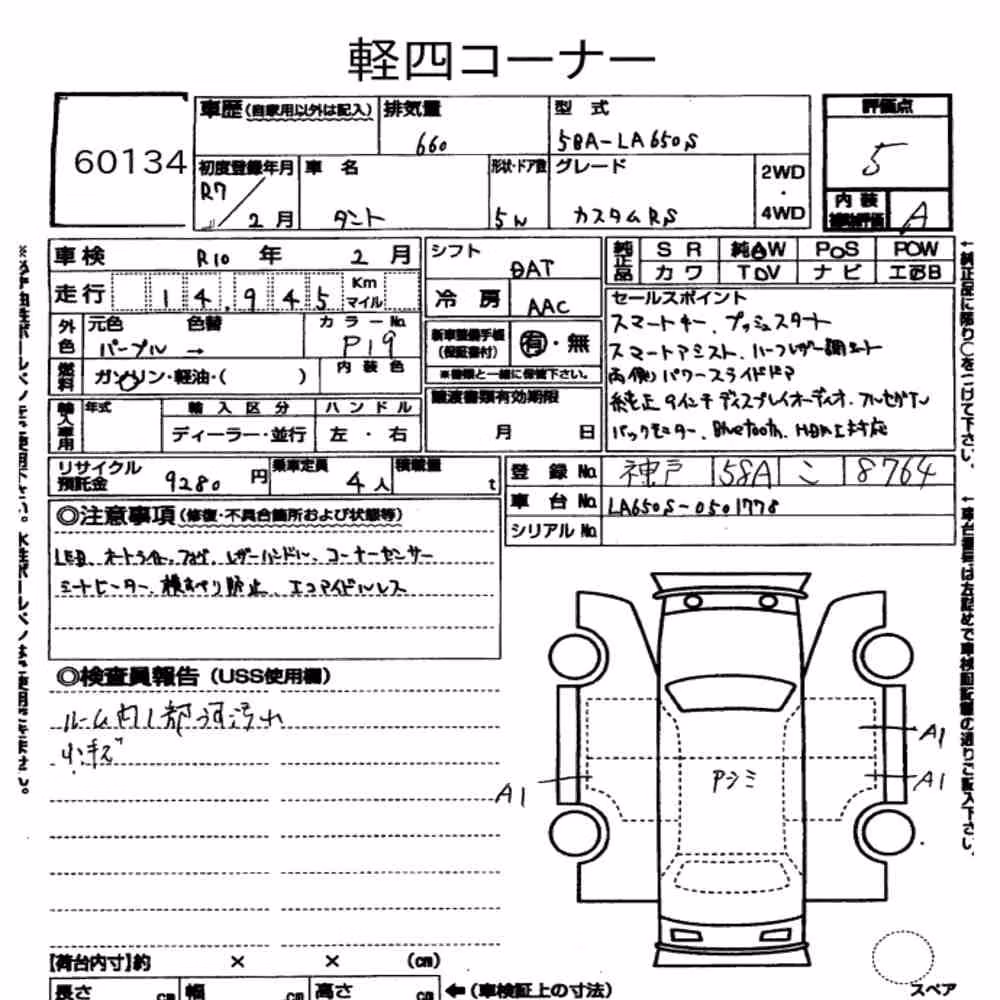 軽四コーナー
60134
車歴(自家用以外は記入) 排気量 660 型式 5BA-LA650S
評価点 5
初度登録年月 R7 2月 車名 タント 形状・ドア数 5W グレード カスタムRS 2WD・4WD
内装 A
車検 R10年 2月
シフト DAT
純正品 SR 純AW PoS POW
カワ TOV ナビ エアB
走行 14,945 Km マイル
冷房 AAC
セールスポイント
スマートキー、プッシュスタート
スマートアシスト、ハーフレザー調シート
両側パワースライドドア
純正9インチディスプレイオーディオ・フルセグTV
バックモニター、Bluetooth、HDMI対応
外色 元色 パープル → 色替 カラーNo. P19
新車整備手帳(保証書付) 有・無
※書類と一緒に保管下さい。
燃料 ガソリン・軽油・( ) 内装色
譲渡書類有効期限
月 日
輸入車用 年式 輸入区分 ハンドル
ディーラー・並行 左・右
リサイクル預託金 9280円 乗車定員 4人 積載量 t
登録No. 神戸 58A こ 8764
車台No. LA650S-0501778
シリアルNo.
◎注意事項(修復・不具合箇所および状態等)
LED、オートライト、フォグ、レザーハンドル、コーナーセンサー
シートヒーター、横すべり防止、エコアイドルレス
◎検査員報告(USS使用欄)
ルーム内1部
小キズ
A1
A1
A1
Pシミ
【荷台内寸】約 × × (cm)
長さ cm 幅 cm 高さ cm ←(車検証上の寸法)
スペア